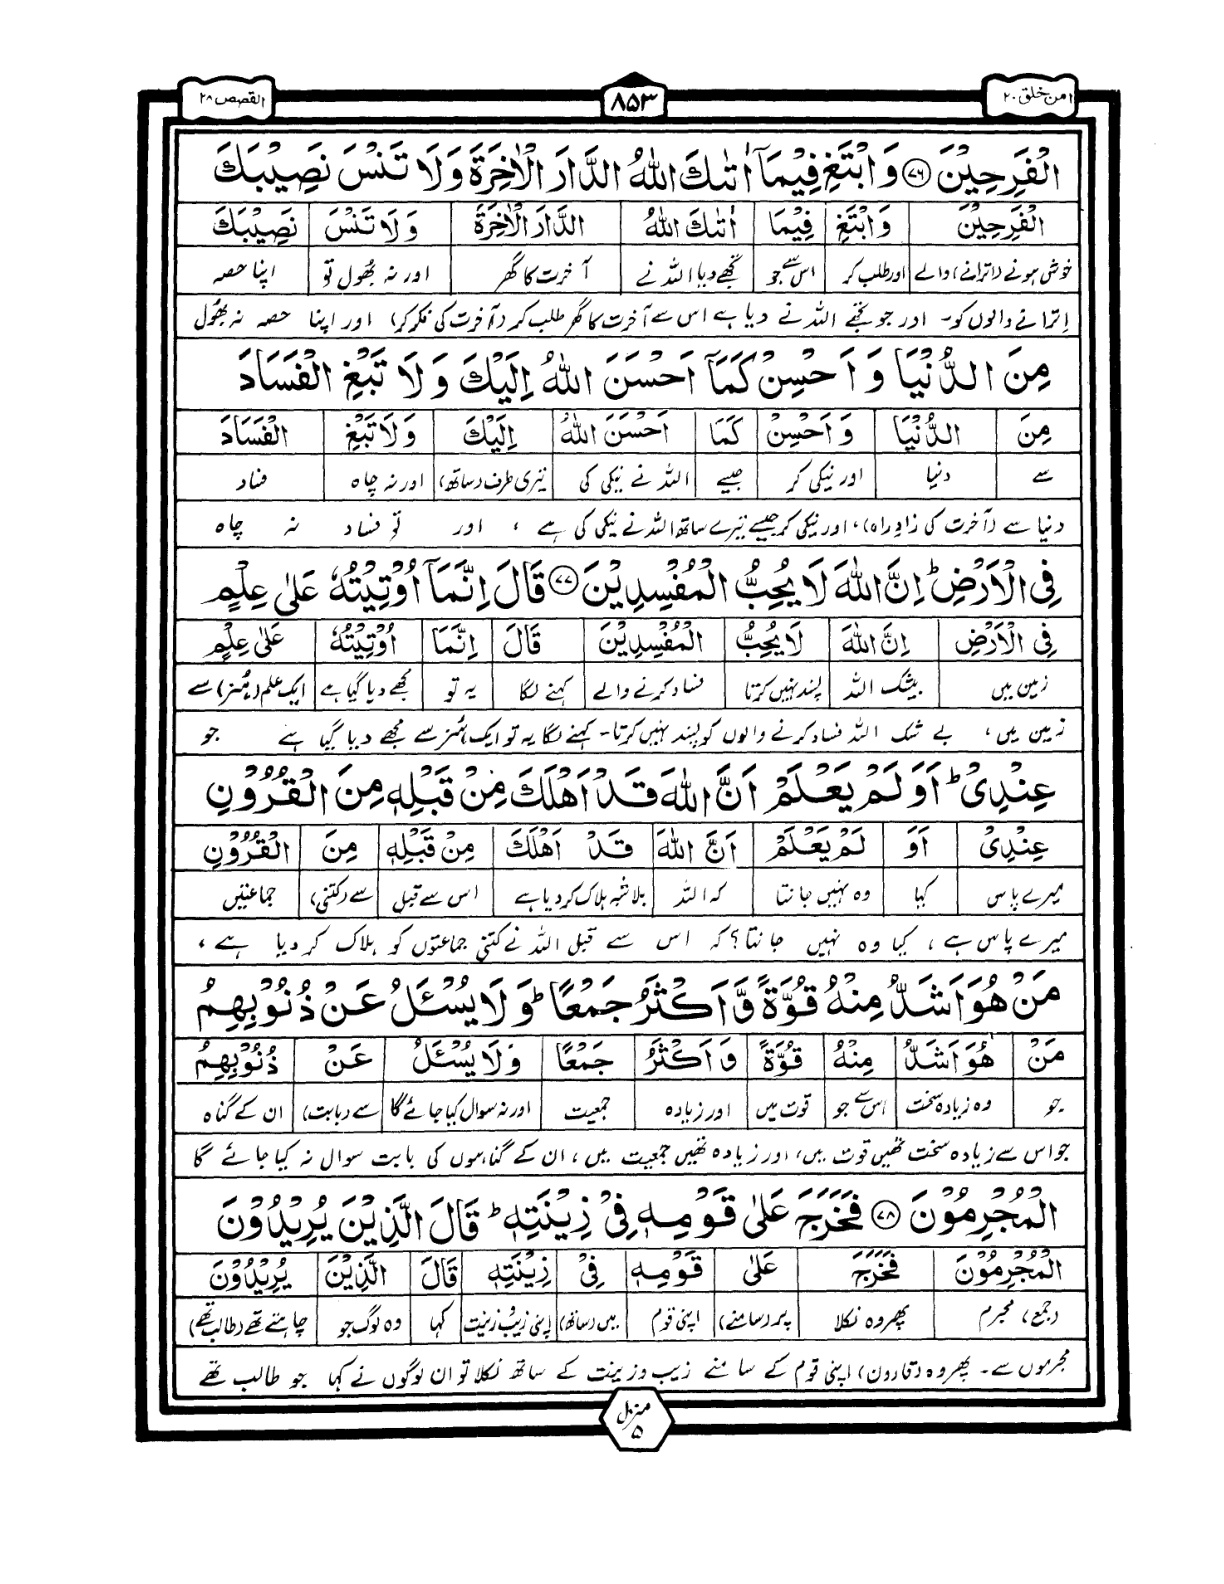 امن خلق ۲۰
۸۵۳
القصص ۲۸
الْفَرِحِيْنَ ﴿۷۶﴾ وَابْتَغِ فِيْمَآ اٰتٰىكَ اللّٰهُ الدَّارَ الْاٰخِرَةَ وَلَا تَنْسَ نَصِيْبَكَ
الْفَرِحِيْنَ | وَابْتَغِ | فِيْمَا | اٰتٰىكَ اللّٰهُ | الدَّارَ الْاٰخِرَةَ | وَلَا تَنْسَ | نَصِيْبَكَ
خوش ہونے (اترانے) والے | اور طلب کر | اس سے جو | تجھے دیا اللہ نے | آخرت کا گھر | اور نہ بھول تو | اپنا حصہ
اترانے والوں کو۔ اور جو تجھے اللہ نے دیا ہے اس سے آخرت کا گھر طلب کر (آخرت کی فکر کر) اور اپنا حصہ نہ بھول
مِنَ الدُّنْيَا وَاَحْسِنْ كَمَآ اَحْسَنَ اللّٰهُ اِلَيْكَ وَلَا تَبْغِ الْفَسَادَ
مِنَ | الدُّنْيَا | وَاَحْسِنْ | كَمَا | اَحْسَنَ اللّٰهُ | اِلَيْكَ | وَلَا تَبْغِ | الْفَسَادَ
سے | دنیا | اور نیکی کر | جیسے | اللہ نے نیکی کی | تیری طرف (ساتھ) | اور نہ چاہ | فساد
دنیا سے (آخرت کی زادِ راہ)، اور نیکی کر جیسے تیرے ساتھ اللہ نے نیکی کی ہے ، اور تو فساد نہ چاہ
فِى الْاَرْضِ ؕ اِنَّ اللّٰهَ لَا يُحِبُّ الْمُفْسِدِيْنَ ﴿۷۷﴾ قَالَ اِنَّمَآ اُوْتِيْتُهٗ عَلٰى عِلْمٍ
فِى الْاَرْضِ | اِنَّ اللّٰهَ | لَا يُحِبُّ | الْمُفْسِدِيْنَ | قَالَ | اِنَّمَا | اُوْتِيْتُهٗ | عَلٰى عِلْمٍ
زمین میں | بیشک اللہ | پسند نہیں کرتا | فساد کرنے والے | کہنے لگا | یہ تو | مجھے دیا گیا ہے | ایک علم (ہنر) سے
زمین میں، بے شک اللہ فساد کرنے والوں کو پسند نہیں کرتا۔ کہنے لگا یہ تو ایک ہنر سے مجھے دیا گیا ہے جو
عِنْدِىْ ؕ اَوَلَمْ يَعْلَمْ اَنَّ اللّٰهَ قَدْ اَهْلَكَ مِنْ قَبْلِهٖ مِنَ الْقُرُوْنِ
عِنْدِىْ | اَوَ | لَمْ يَعْلَمْ | اَنَّ اللّٰهَ | قَدْ اَهْلَكَ | مِنْ قَبْلِهٖ | مِنَ | الْقُرُوْنِ
میرے پاس | کیا | وہ نہیں جانتا | کہ اللہ | بلاشبہ ہلاک کر دیا ہے | اس سے قبل | سے (کتنی) | جماعتیں
میرے پاس ہے ، کیا وہ نہیں جانتا؟ کہ اس سے قبل اللہ نے کتنی جماعتوں کو ہلاک کر دیا ہے ،
مَنْ هُوَ اَشَدُّ مِنْهُ قُوَّةً وَّاَكْثَرُ جَمْعًا ؕ وَلَا يُسْـَٔلُ عَنْ ذُنُوْبِهِمُ
مَنْ | هُوَ اَشَدُّ | مِنْهُ | قُوَّةً | وَاَكْثَرُ | جَمْعًا | وَلَا يُسْـَٔلُ | عَنْ | ذُنُوْبِهِمُ
جو | وہ زیادہ سخت | اس سے جو | قوت میں | اور زیادہ | جمعیت | اور نہ سوال کیا جائے گا | سے (بابت) | ان کے گناہ
جو اس سے زیادہ سخت تھیں قوت میں، اور زیادہ تھیں جمعیت میں، ان کے گناہوں کی بابت سوال نہ کیا جائے گا
الْمُجْرِمُوْنَ ﴿۷۸﴾ فَخَرَجَ عَلٰى قَوْمِهٖ فِىْ زِيْنَتِهٖ ؕ قَالَ الَّذِيْنَ يُرِيْدُوْنَ
الْمُجْرِمُوْنَ | فَخَرَجَ | عَلٰى | قَوْمِهٖ | فِىْ | زِيْنَتِهٖ | قَالَ | الَّذِيْنَ | يُرِيْدُوْنَ
(جمع) مجرم | پھر وہ نکلا | پر (سامنے) | اپنی قوم | میں (ساتھ) | اپنی زیب و زینت | کہا | وہ لوگ جو | چاہتے تھے (طالب تھے)
مجرموں سے۔ پھر وہ (قارون) اپنی قوم کے سامنے زیب وزینت کے ساتھ نکلا تو ان لوگوں نے کہا جو طالب تھے
منزل
۵